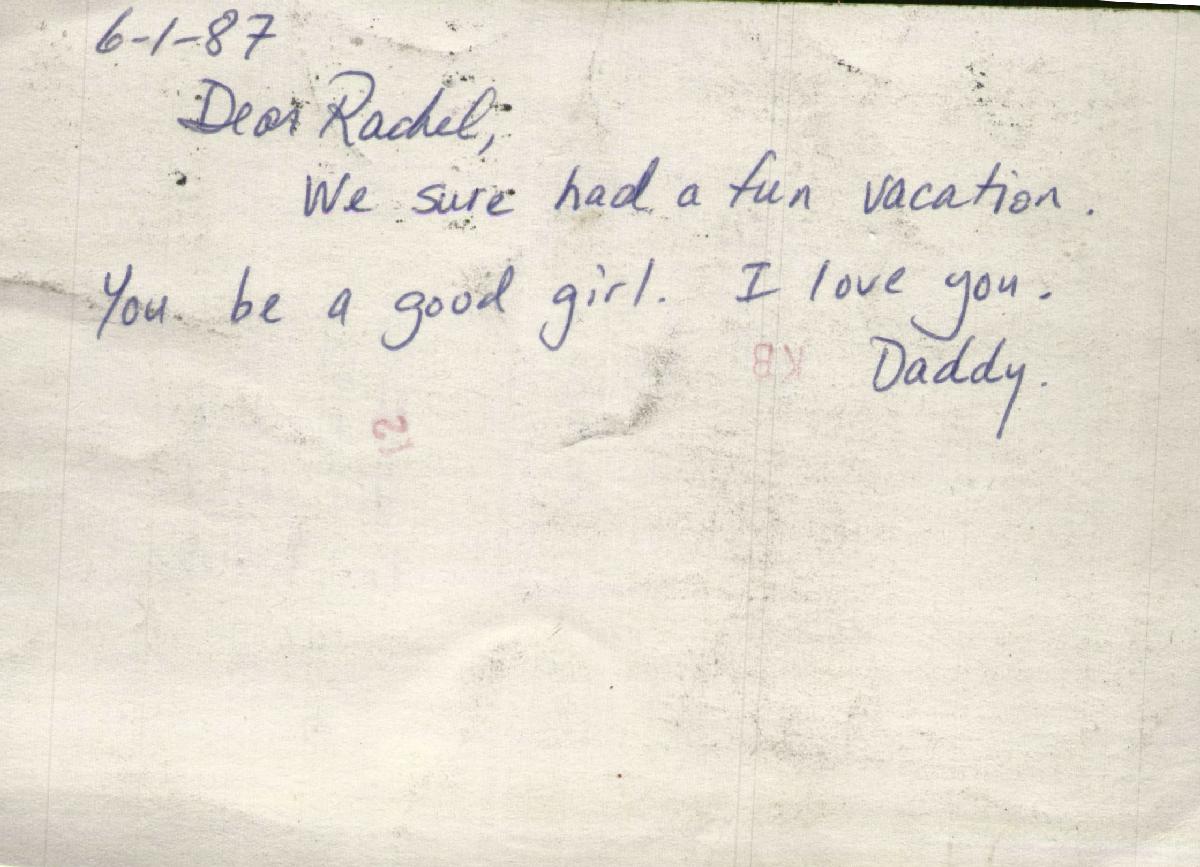 6-1-87
Dear Rachel,
We sure had a fun vacation.
You be a good girl. I love you.
Daddy.
KB
21